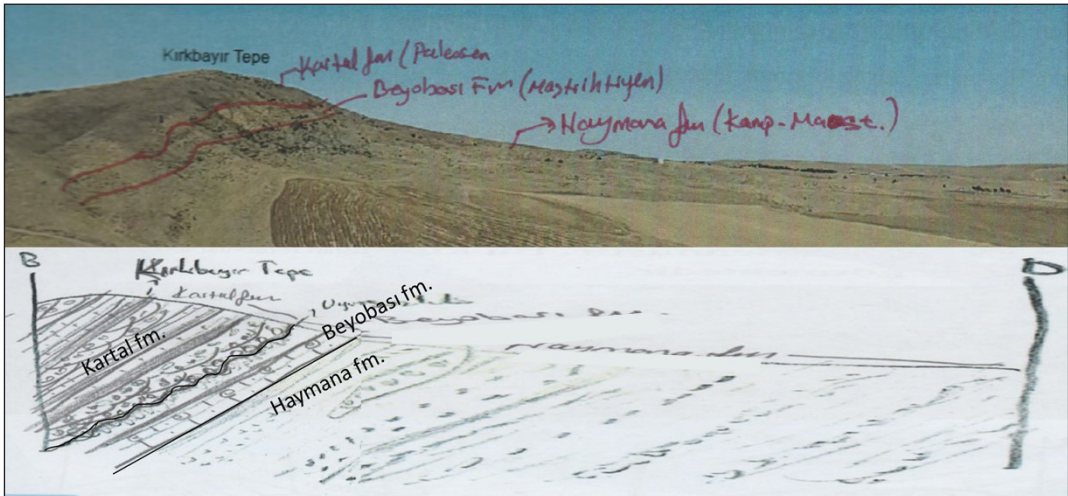 Kırkbayır Tepe
Kartal fm (Paleosen
Beyobası Fm (Mastrihtiyen)
Haymana fm (Kamp-Maast.)
B
D
Kırkbayır Tepe
Kartal fm
Beyobası fm.
Beyobası fm.
Haymana fm
Kartal fm.
Haymana fm.